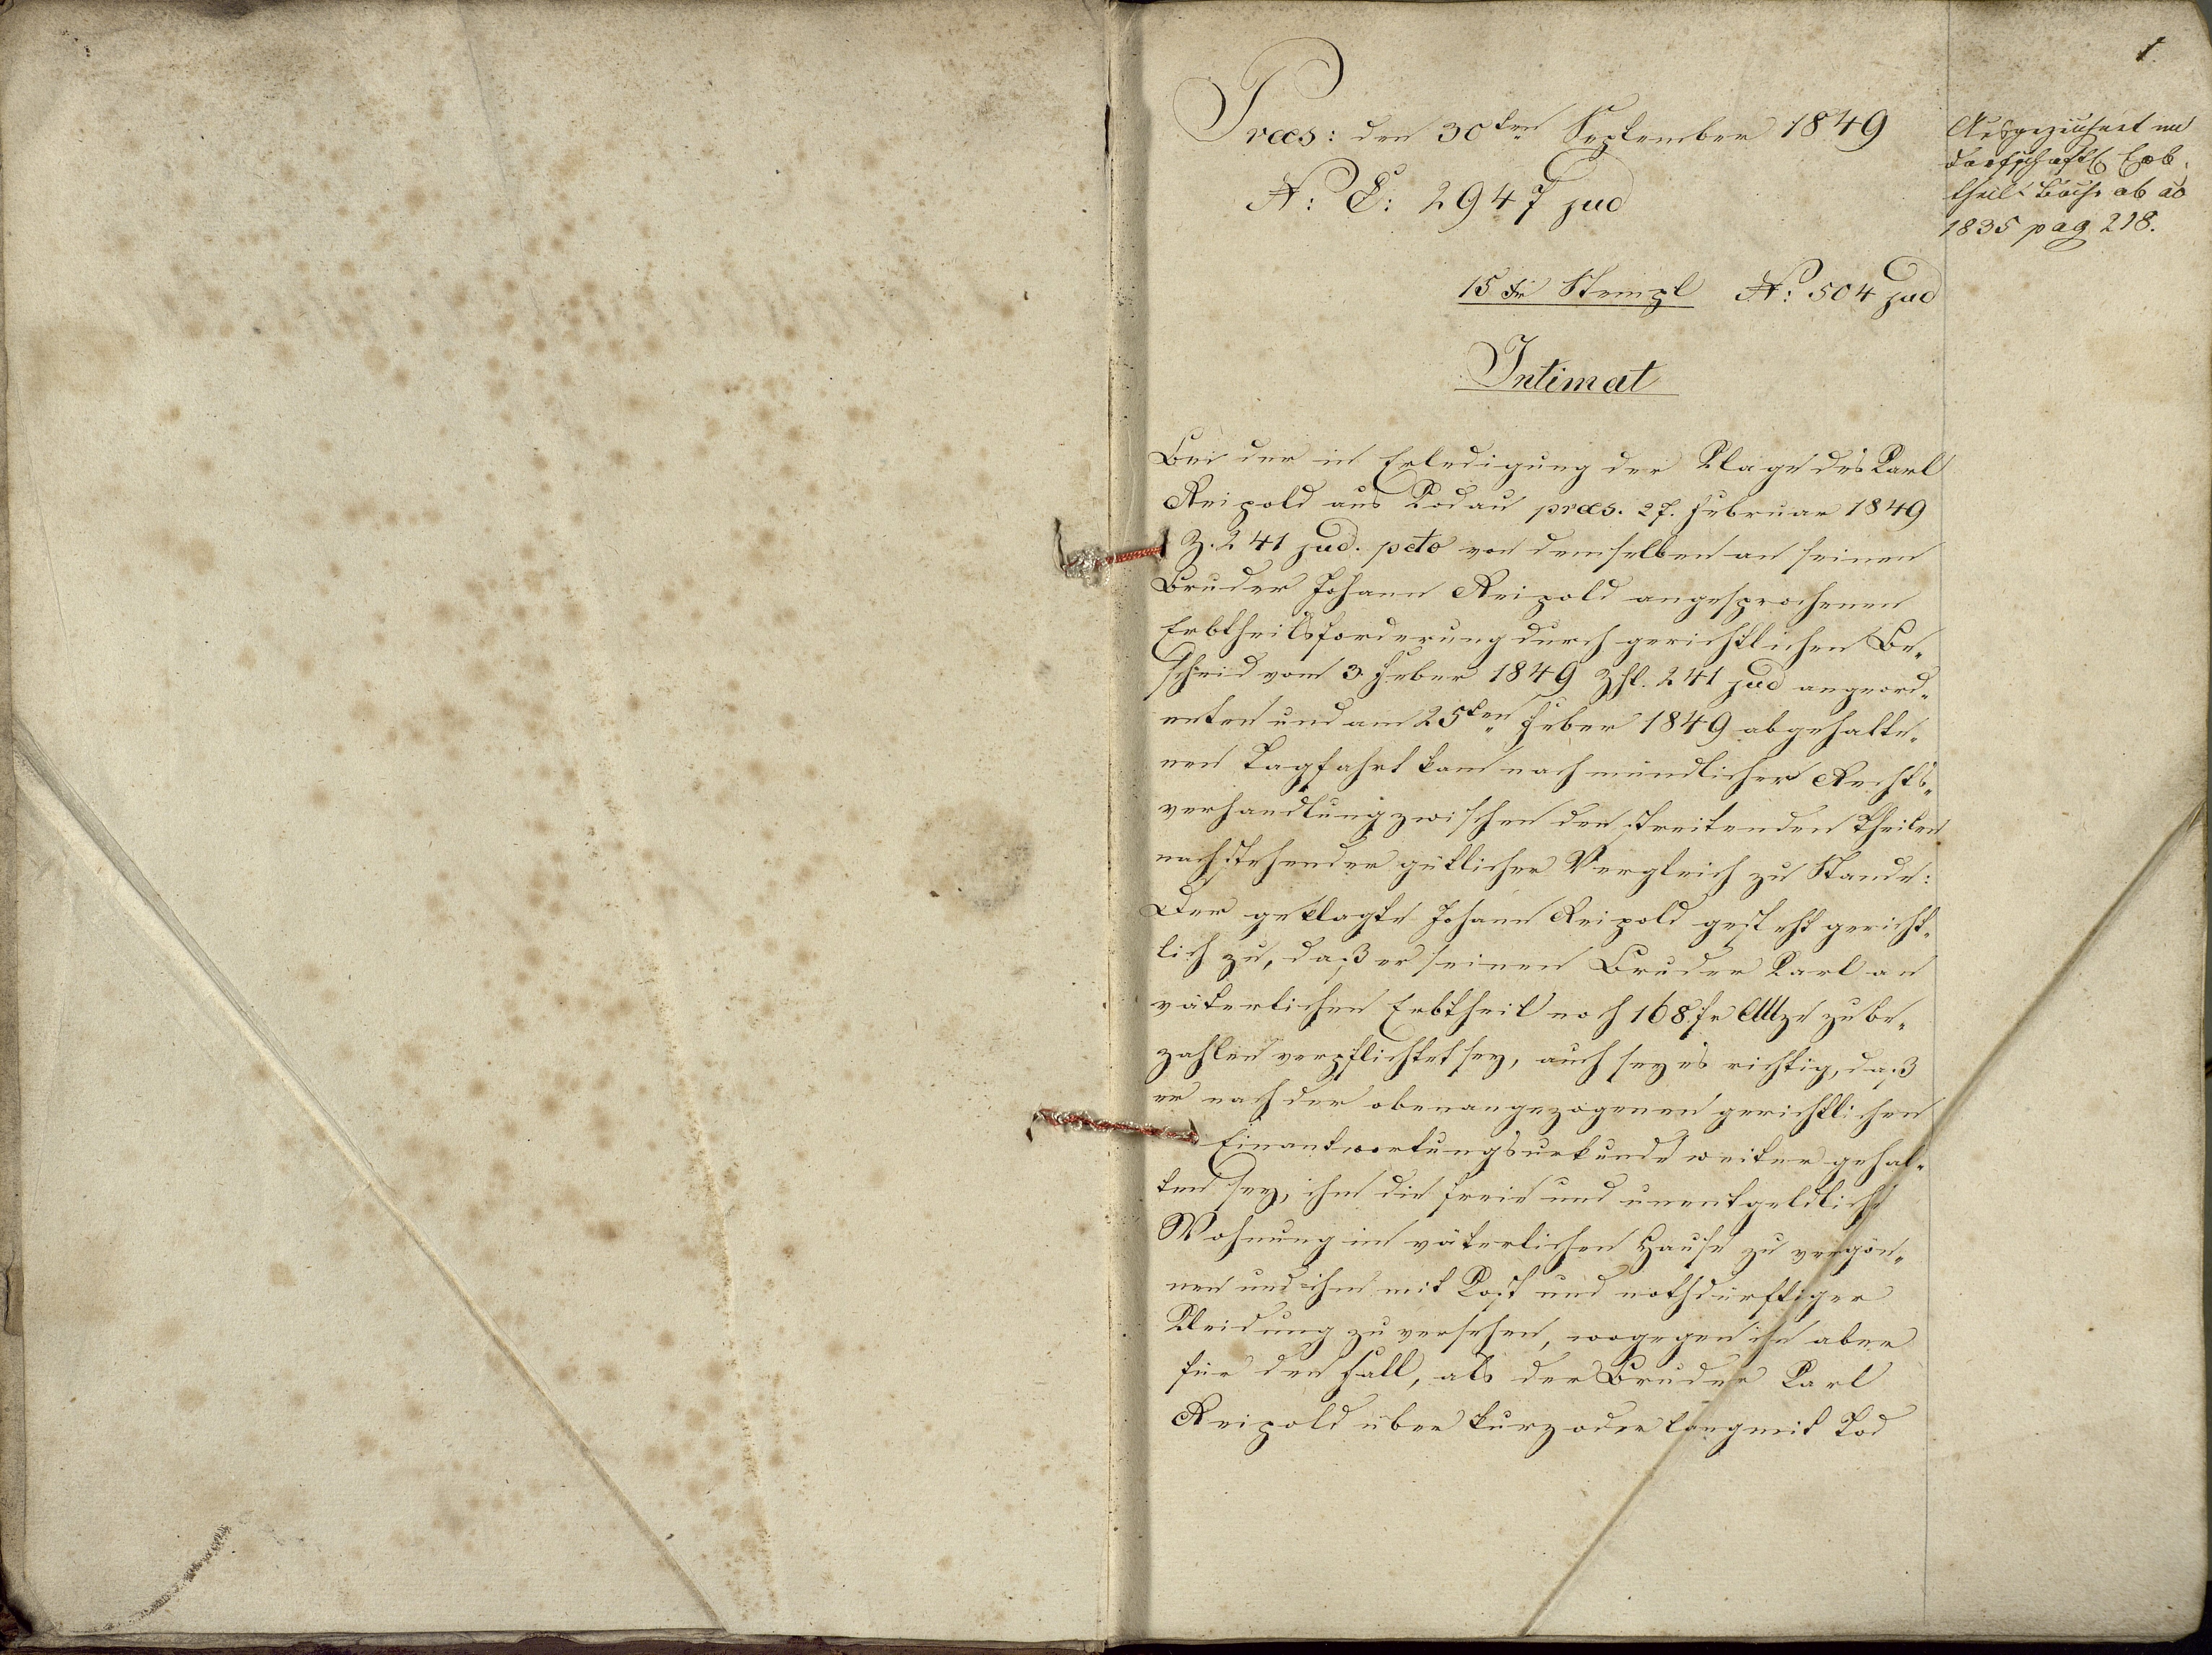 1.
Praes: den 30ten September 1849
N: E: 2947 jud
15 xr Stempl N: 504 jud
Intimat
Bei der in Erledigung der Klage des Karl
Reipold aus Rodau praes. 27. Februar 1849
Z. 241 jud. pcto von demselben an seinen
Bruder Johann Reipold angesprochenen
Erbtheilsforderung durch gerichtlichen Be-
scheid vom 3 Feber 1849 Zhl. 241 jud angeord-
neten und am 25ten Feber 1849 abgehalte-
nen Tagfahrt kam nach mündlicher Rechts-
verhandlung zwischen den streitenden Theilen
nachstehender gütlicher Vergleich zu Stande:
Der geklagte Johann Reipold gesteht gericht-
lich zu, daß er seinen Bruder Karl an
väterlichen Erbtheil noch 168 fr Mze zu be-
zahlen verpflichtet sey, auch sey es richtig, daß
er nach der obenangezogenen gerichtlichen
Einantwortungsurkunde weiter gehal-
ten sey, ihm die freie und unentgeldliche
Wohnung im väterlichen Hause zu vergön-
nen und ihn mit Kost und nothdürftiger
Kleidung zu versehen, wogegen ihn aber
für den Fall, als der Bruder Karl
Reipold über kurz oder lang mit Tod
Ausgezeichnet im
dorfschaftl Erb-
theil Buche ab ao
1835 pag 218.